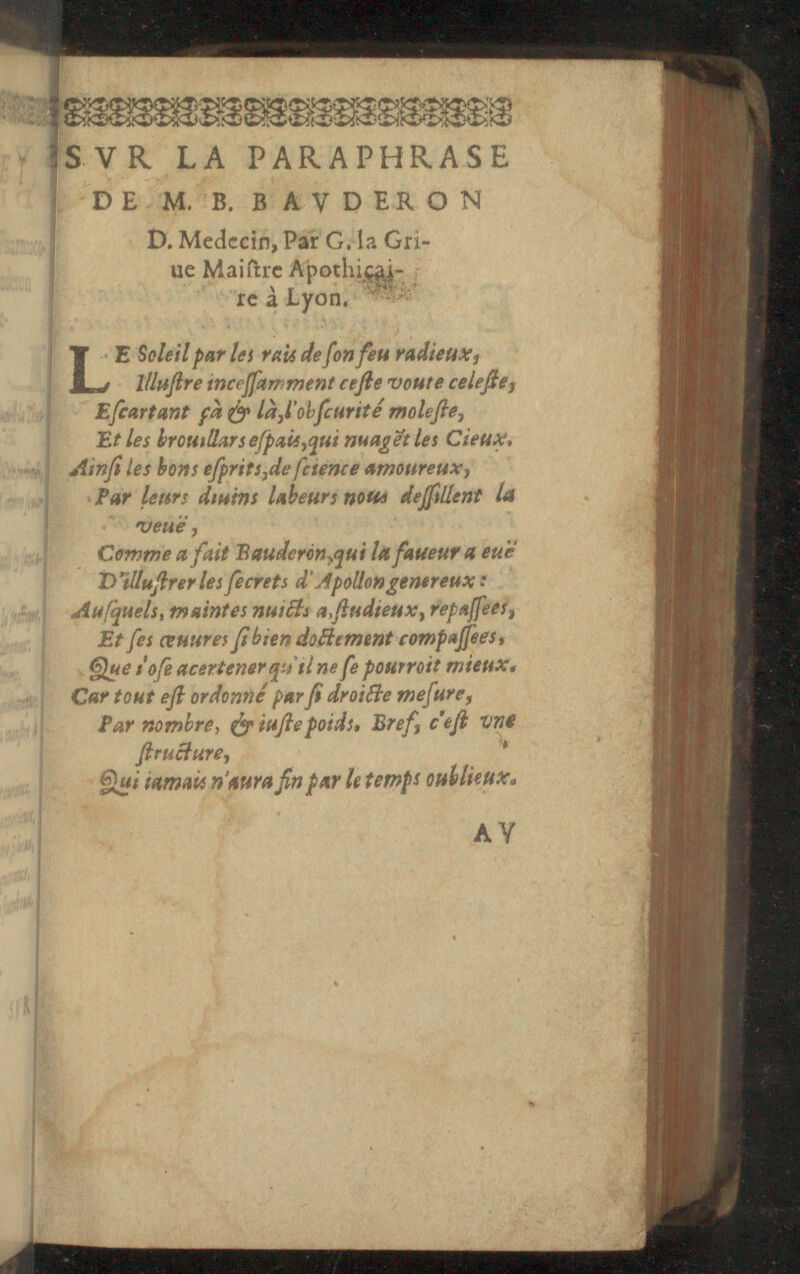 SVR LA PARAPHRASE
DE M. B. BAVDERON
D. Medecin, Par G. la Gri-
ue Maiſtre Apothicai-
re à Lyon.
LE Soleil par les rais de ſon feu radieux,
Illuſtre inceſſamment ceſte voute celeſte,
Eſcartant çà & là, l'obſcurité moleſte,
Et les brouillars eſpais, qui nuagẽt les Cieux.
Ainſi les bons eſprits, de ſcience amoureux,
Par leurs diuins labeurs nous deſſillent la
veuë,
Comme a fait Bauderon, qui la faueur a euë
D'illuſtrer les ſecrets d'Apollon genereux:
Auſquels, maintes nuicts a, ſtudieux, repaſſees,
Et ſes œuures ſi bien doctement compaſſees,
Que i'oſe acertener qu'il ne ſe pourroit mieux.
Car tout eſt ordonné par ſi droicte meſure,
Par nombre, & iuſte poids. Bref, c'eſt vne
ſtructure,
Qui iamais n'aura fin par le temps oublieux.
AV